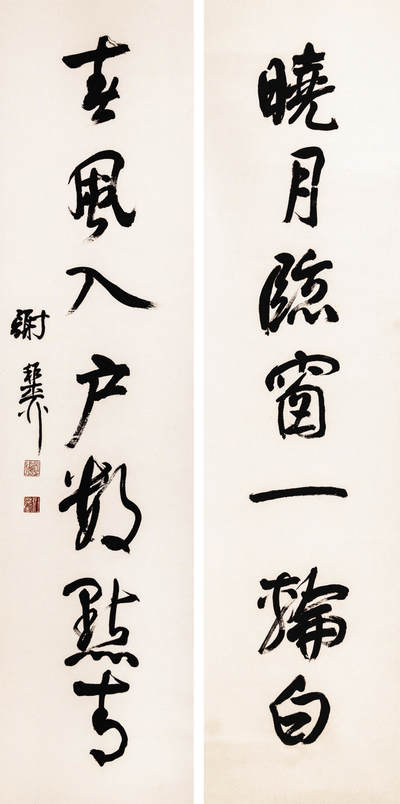 曉月臨窗一輪白
春風入户數點青
謝